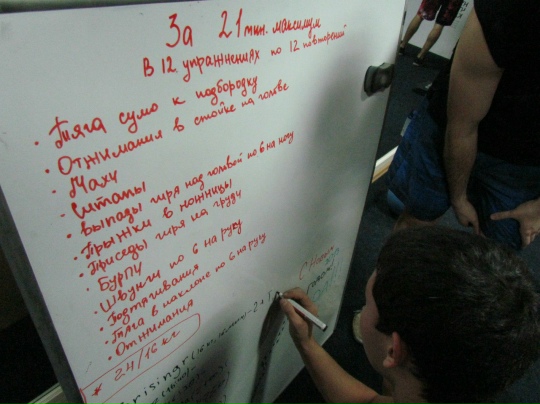 За 21 мин. максимум
В 12 упражнениях по 12 повторений
• Тяга сумо к подбородку
• Отжимания в стойке на голове
• Махи
• Ситапы
• Выпады гиря над головой по 6 на ногу
• Прыжки в ножницы
• Приседы гиря на груди
• Бурпи
• Швунги по 6 на руку
• Подтягивания
• Тяга в наклоне по 6 на руку
• Отжимания
* 24/16 кг